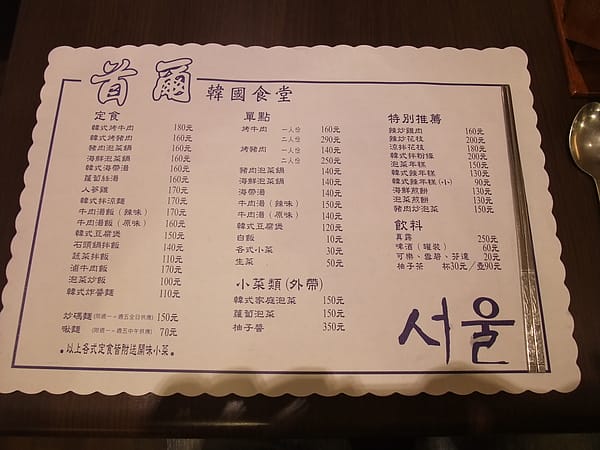 首爾 韓國食堂
定食
韓式烤牛肉 180元
韓式烤豬肉 160元
豬肉泡菜鍋 160元
海鮮泡菜鍋 160元
韓式海帶湯 160元
蘿蔔絲湯 160元
人蔘雞 170元
韓式拌涼麵 170元
牛肉湯飯（辣味） 170元
牛肉湯飯（原味） 160元
韓式豆腐煲 150元
石頭鍋拌飯 140元
蔬菜拌飯 110元
滷牛肉飯 170元
泡菜炒飯 100元
韓式炸醬麵 110元
炒碼麵（限週一~週五全日供應） 150元
啾麵（限週一~週五中午供應） 70元
•以上各式定食皆附送開味小菜•
單點
烤牛肉 一人份 160元
二人份 290元
烤豬肉 一人份 140元
二人份 250元
豬肉泡菜鍋 140元
海鮮泡菜鍋 140元
海帶湯 140元
牛肉湯（辣味） 150元
牛肉湯（原味） 140元
韓式豆腐煲 120元
白飯 10元
各式小菜 30元
生菜 50元
小菜類（外帶）
韓式家庭泡菜 150元
蘿蔔泡菜 150元
柚子醬 350元
特別推薦
辣炒雞肉 160元
辣炒花枝 200元
涼拌花枝 180元
韓式拌粉條 200元
泡菜年糕 150元
韓式辣年糕 130元
韓式辣年糕（小） 90元
海鮮煎餅 130元
泡菜煎餅 130元
豬肉炒泡菜 150元
飲料
真露 250元
啤酒（罐裝） 60元
可樂、雪碧、芬達 20元
柚子茶 杯30元／壺90元
서울